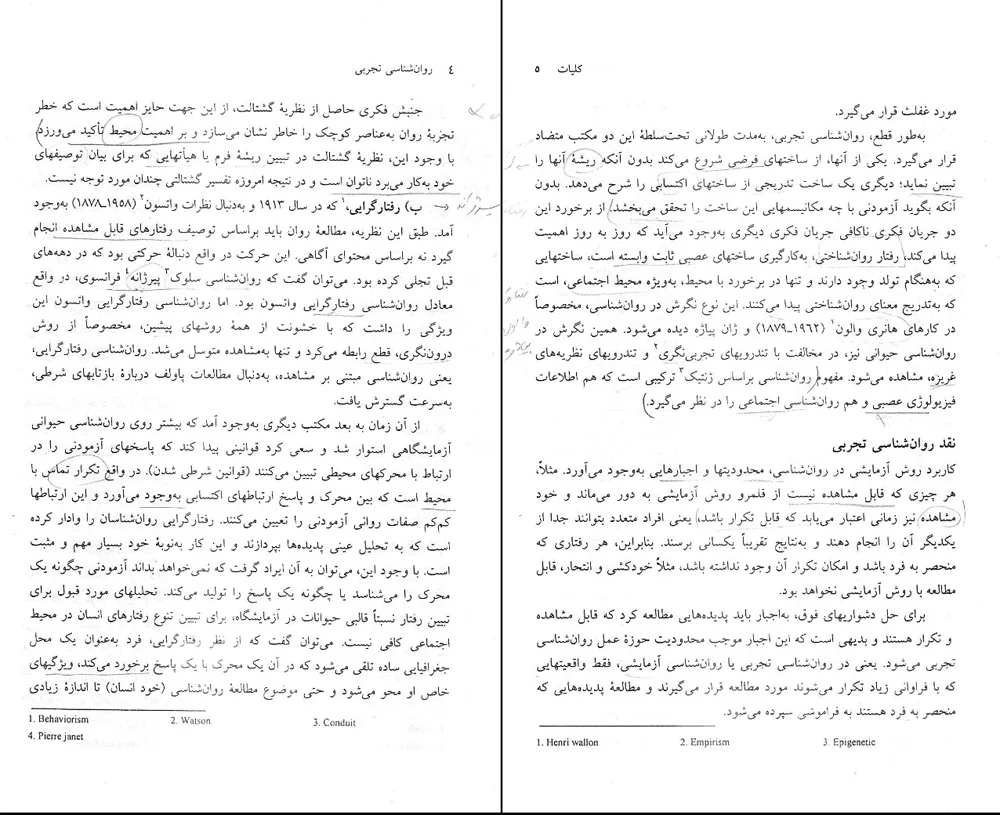 ٤ روان‌شناسی تجربی
جنبش فکری حاصل از نظریهٔ گشتالت، از این جهت حایز اهمیت است که خطر
تجزیهٔ روان به‌عناصر کوچک را خاطر نشان می‌سازد و بر اهمیت محیط تأکید می‌ورزد.
با وجود این، نظریهٔ گشتالت در تبیین ریشهٔ فرم یا هیأتهایی که برای بیان توصیفهای
خود به‌کار می‌برد ناتوان است و در نتیجه امروزه تفسیر گشتالتی چندان مورد توجه نیست.
ب) رفتارگرایی،۱ که در سال ۱۹۱۳ و به‌دنبال نظرات واتسون۲ (۱۹۵۸ـ۱۸۷۸) به‌وجود
آمد. طبق این نظریه، مطالعهٔ روان باید براساس توصیف رفتارهای قابل مشاهده انجام
گیرد نه براساس محتوای آگاهی. این حرکت در واقع دنبالهٔ حرکتی بود که در دهه‌های
قبل تجلی کرده بود. می‌توان گفت که روان‌شناسی سلوک۳ پیرژانه۴ فرانسوی، در واقع
معادل روان‌شناسی رفتارگرایی واتسون بود. اما روان‌شناسی رفتارگرایی واتسون این
ویژگی را داشت که با خشونت از همهٔ روشهای پیشین، مخصوصاً از روش
درون‌نگری، قطع رابطه می‌کرد و تنها به‌مشاهده متوسل می‌شد. روان‌شناسی رفتارگرایی،
یعنی روان‌شناسی مبتنی بر مشاهده، به‌دنبال مطالعات پاولف دربارهٔ بازتابهای شرطی،
به‌سرعت گسترش یافت.
از آن زمان به بعد مکتب دیگری به‌وجود آمد که بیشتر روی روان‌شناسی حیوانی
آزمایشگاهی استوار شد و سعی کرد قوانینی پیدا کند که پاسخهای آزمودنی را در
ارتباط با محرکهای محیطی تبیین می‌کنند (قوانین شرطی شدن). در واقع تکرار تماس با
محیط است که بین محرک و پاسخ ارتباطهای اکتسابی به‌وجود می‌آورد و این ارتباطها
کم‌کم صفات روانی آزمودنی را تعیین می‌کنند. رفتارگرایی روان‌شناسان را وادار کرده
است که به تحلیل عینی پدیده‌ها بپردازند و این کار به‌نوبهٔ خود بسیار مهم و مثبت
است. با وجود این، می‌توان به آن ایراد گرفت که نمی‌خواهد بداند آزمودنی چگونه یک
محرک را می‌شناسد یا چگونه یک پاسخ را تولید می‌کند. تحلیلهای مورد قبول برای
تبیین رفتار نسبتاً قالبی حیوانات در آزمایشگاه، برای تبیین تنوع رفتارهای انسان در محیط
اجتماعی کافی نیست. می‌توان گفت که از نظر رفتارگرایی، فرد به‌عنوان یک محل
جغرافیایی ساده تلقی می‌شود که در آن یک محرک با یک پاسخ برخورد می‌کند، ویژگیهای
خاص او محو می‌شود و حتی موضوع مطالعهٔ روان‌شناسی (خود انسان) تا اندازهٔ زیادی
1. Behaviorism 2. Watson 3. Conduit
4. Pierre janet
کلیات ۵
مورد غفلت قرار می‌گیرد.
به‌طور قطع، روان‌شناسی تجربی، به‌مدت طولانی تحت‌سلطهٔ این دو مکتب متضاد
قرار می‌گیرد. یکی از آنها، از ساختهای فرضی شروع می‌کند بدون آنکه ریشهٔ آنها را
تبیین نماید؛ دیگری یک ساخت تدریجی از ساختهای اکتسابی را شرح می‌دهد. بدون
آنکه بگوید آزمودنی با چه مکانیسمهایی این ساخت را تحقق می‌بخشد. از برخورد این
دو جریان فکری ناکافی جریان فکری دیگری به‌وجود می‌آید که روز به روز اهمیت
پیدا می‌کند، رفتار روان‌شناختی، به‌کارگیری ساختهای عصبی ثابت وابسته است، ساختهایی
که به‌هنگام تولد وجود دارند و تنها در برخورد با محیط، به‌ویژه محیط اجتماعی، است
که به‌تدریج معنای روان‌شناختی پیدا می‌کنند. این نوع نگرش در روان‌شناسی، مخصوصاً
در کارهای هانری والون۱ (۱۹۶۲ـ۱۸۷۹) و ژان پیاژه دیده می‌شود. همین نگرش در
روان‌شناسی حیوانی نیز، در مخالفت با تندرویهای تجربی‌نگری۲ و تندرویهای نظریه‌های
غریزه، مشاهده می‌شود. مفهوم روان‌شناسی براساس ژنتیک۳ ترکیبی است که هم اطلاعات
فیزیولوژی عصبی و هم روان‌شناسی اجتماعی را در نظر می‌گیرد.
نقد روان‌شناسی تجربی
کاربرد روش آزمایشی در روان‌شناسی، محدودیتها و اجبارهایی به‌وجود می‌آورد. مثلاً،
هر چیزی که قابل مشاهده نیست از قلمرو روش آزمایشی به دور می‌ماند و خود
مشاهده نیز زمانی اعتبار می‌یابد که قابل تکرار باشد، یعنی افراد متعدد بتوانند جدا از
یکدیگر آن را انجام دهند و به‌نتایج تقریباً یکسانی برسند. بنابراین، هر رفتاری که
منحصر به فرد باشد و امکان تکرار آن وجود نداشته باشد، مثلاً خودکشی و انتحار، قابل
مطالعه با روش آزمایشی نخواهد بود.
برای حل دشواریهای فوق، به‌اجبار باید پدیده‌هایی مطالعه کرد که قابل مشاهده
و تکرار هستند و بدیهی است که این اجبار موجب محدودیت حوزهٔ عمل روان‌شناسی
تجربی می‌شود. یعنی در روان‌شناسی تجربی یا روان‌شناسی آزمایشی، فقط واقعیتهایی
که با فراوانی زیاد تکرار می‌شوند مورد مطالعه قرار می‌گیرند و مطالعهٔ پدیده‌هایی که
منحصر به فرد هستند به فراموشی سپرده می‌شود.
1. Henri wallon 2. Empirism 3. Epigenetic